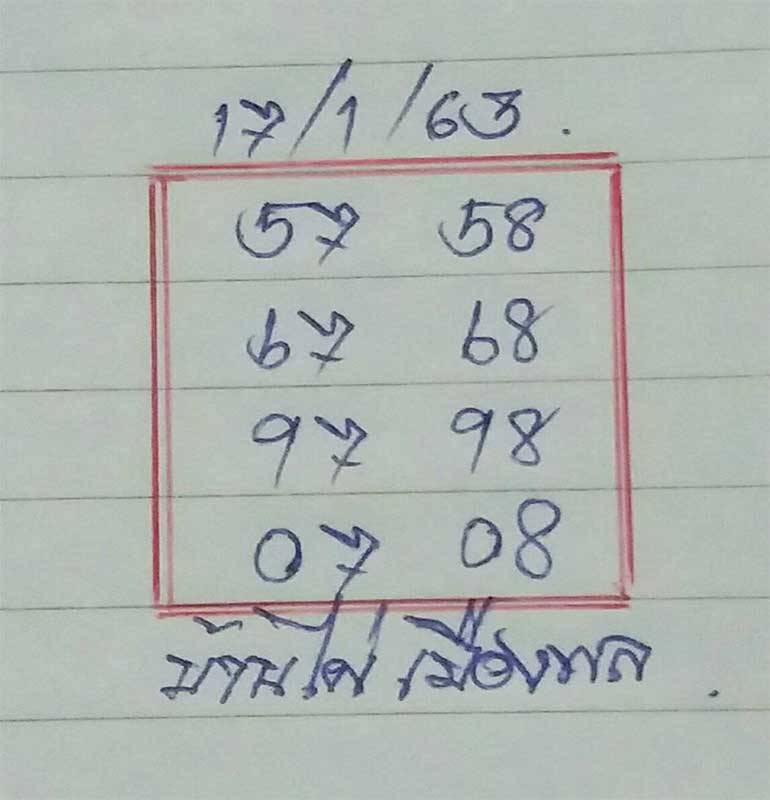 17/1/63.
57 58
67 68
97 98
07 08
บ้านไผ่ เมืองพล.